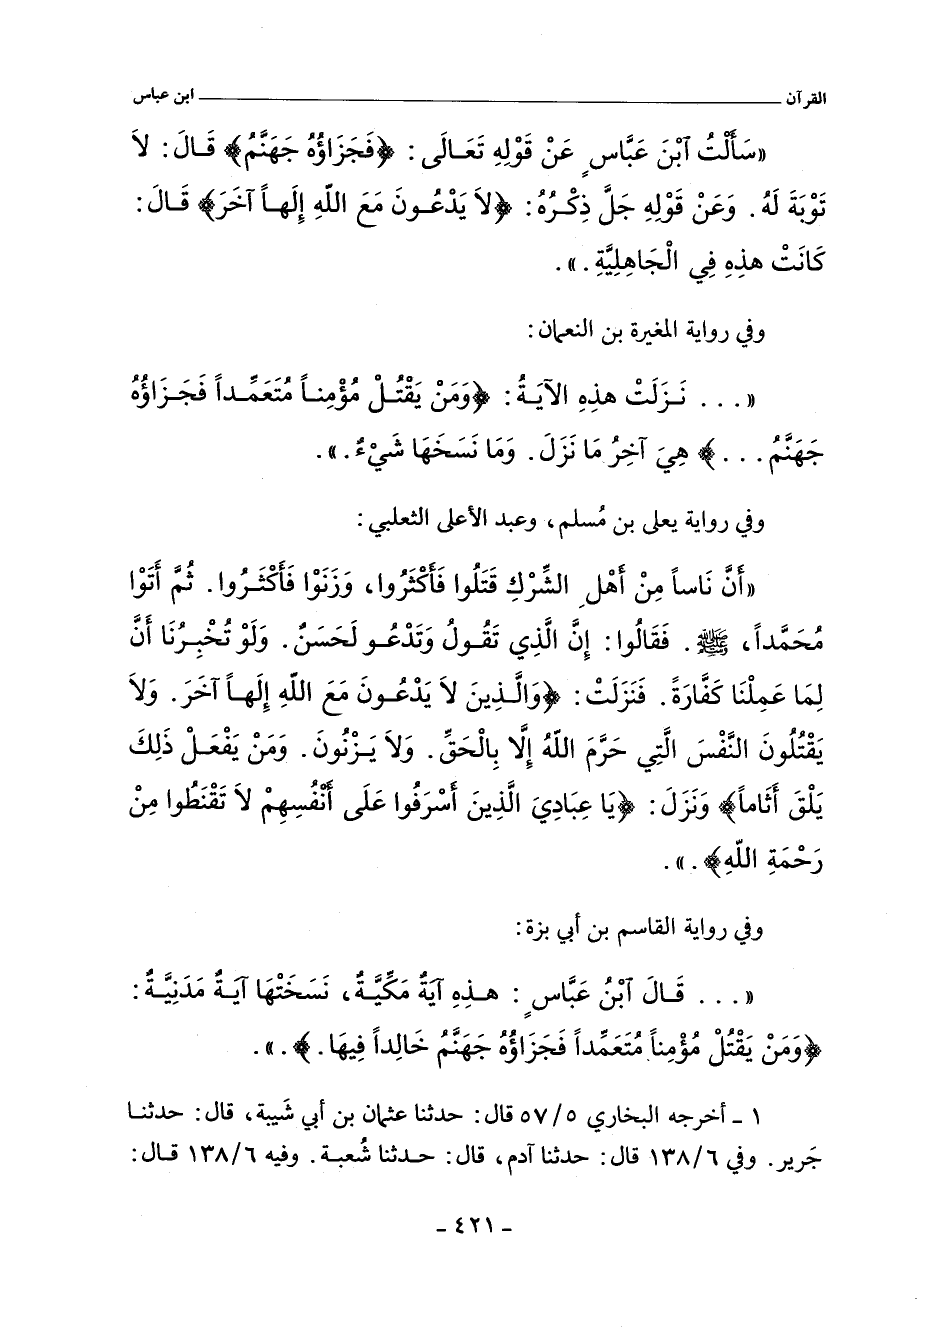 القرآن ــــــــــــــــــــــــــــــــــــــــ ابن عباس
«سَأَلْتُ آبْنَ عَبَّاسٍ عَنْ قَوْلِهِ تَعَالَى: ﴿فَجَزَاؤُهُ جَهَنَّمُ﴾ قَالَ: لَا
تَوْبَةَ لَهُ. وَعَنْ قَوْلِهِ جَلَّ ذِكْرُهُ: ﴿لَا يَدْعُونَ مَعَ اللهِ إِلَهاً آخَرَ﴾ قَالَ:
كَانَتْ هذِهِ فِي الْجَاهِلِيَّةِ.».
وفي رواية المغيرة بن النعمان:
«... نَزَلَتْ هذِهِ الآيَةُ: ﴿وَمَنْ يَقْتُلْ مُؤْمِناً مُتَعَمِّداً فَجَزَاؤُهُ
جَهَنَّمُ...﴾ هِيَ آخِرُ مَا نَزَلَ. وَمَا نَسَخَهَا شَيْءٌ.».
وفي رواية يعلى بن مُسلم، وعبد الأعلى الثعلبي:
«أَنَّ نَاساً مِنْ أَهْلِ الشِّرْكِ قَتَلُوا فَأَكْثَرُوا، وَزَنَوْا فَأَكْثَرُوا. ثُمَّ أَتَوْا
مُحَمَّداً، ﷺ. فَقَالُوا: إِنَّ الَّذِي تَقُولُ وَتَدْعُو لَحَسَنٌ. وَلَوْ تُخْبِرُنَا أَنَّ
لِمَا عَمِلْنَا كَفَّارَةً. فَنَزَلَتْ: ﴿وَالَّذِينَ لَا يَدْعُونَ مَعَ اللهِ إِلَهاً آخَرَ. وَلَا
يَقْتُلُونَ النَّفْسَ الَّتِي حَرَّمَ اللهُ إِلَّا بِالْحَقِّ. وَلَا يَزْنُونَ. وَمَنْ يَفْعَلْ ذَلِكَ
يَلْقَ أَثَاماً﴾ وَنَزَلَ: ﴿يَا عِبَادِيَ الَّذِينَ أَسْرَفُوا عَلَى أَنْفُسِهِمْ لَا تَقْنَطُوا مِنْ
رَحْمَةِ اللهِ﴾.».
وفي رواية القاسم بن أبي بزة:
«... قَالَ آبْنُ عَبَّاسٍ: هذِهِ آيَةٌ مَكِّيَّةٌ، نَسَخَتْهَا آيَةٌ مَدَنِيَّةٌ:
﴿وَمَنْ يَقْتُلْ مُؤْمِناً مُتَعَمِّداً فَجَزَاؤُهُ جَهَنَّمُ خَالِداً فِيهَا.﴾.».
١ - أخرجه البخاري ٥٧/٥ قال: حدثنا عثمان بن أبي شَيبة، قال: حدثنا
جَرير. وفي ١٣٨/٦ قال: حدثنا آدم، قال: حدثنا شُعبة. وفيه ١٣٨/٦ قال:
- ٤٢١ -